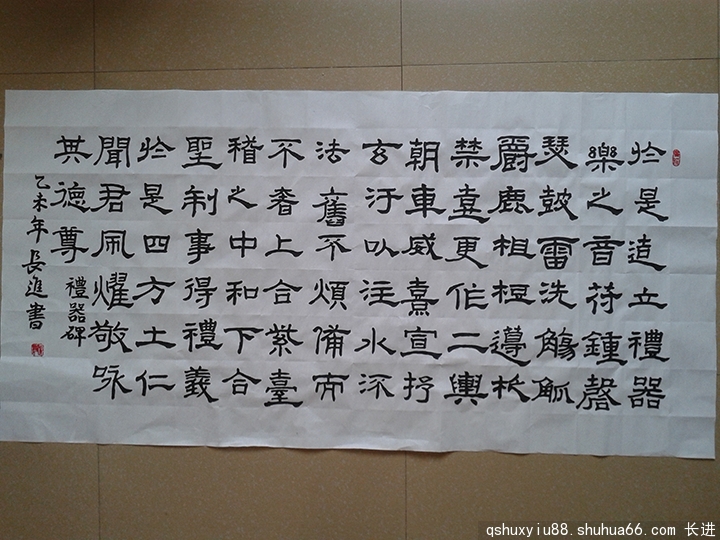 於是造立禮器
樂之音苻鍾磬
瑟皷雷洗觴觚
爵鹿柤梪籩柉
禁壺更作二輿
朝車威熹宣抒
玄汙以注水流
法舊不煩備而
不奢上合紫臺
稽之中和下合
聖制事得禮義
於是四方土仁
聞君風燿敬咏
其德尊
禮器碑
乙未年長進書
qshuxyiu88.shuhua66.com 长进